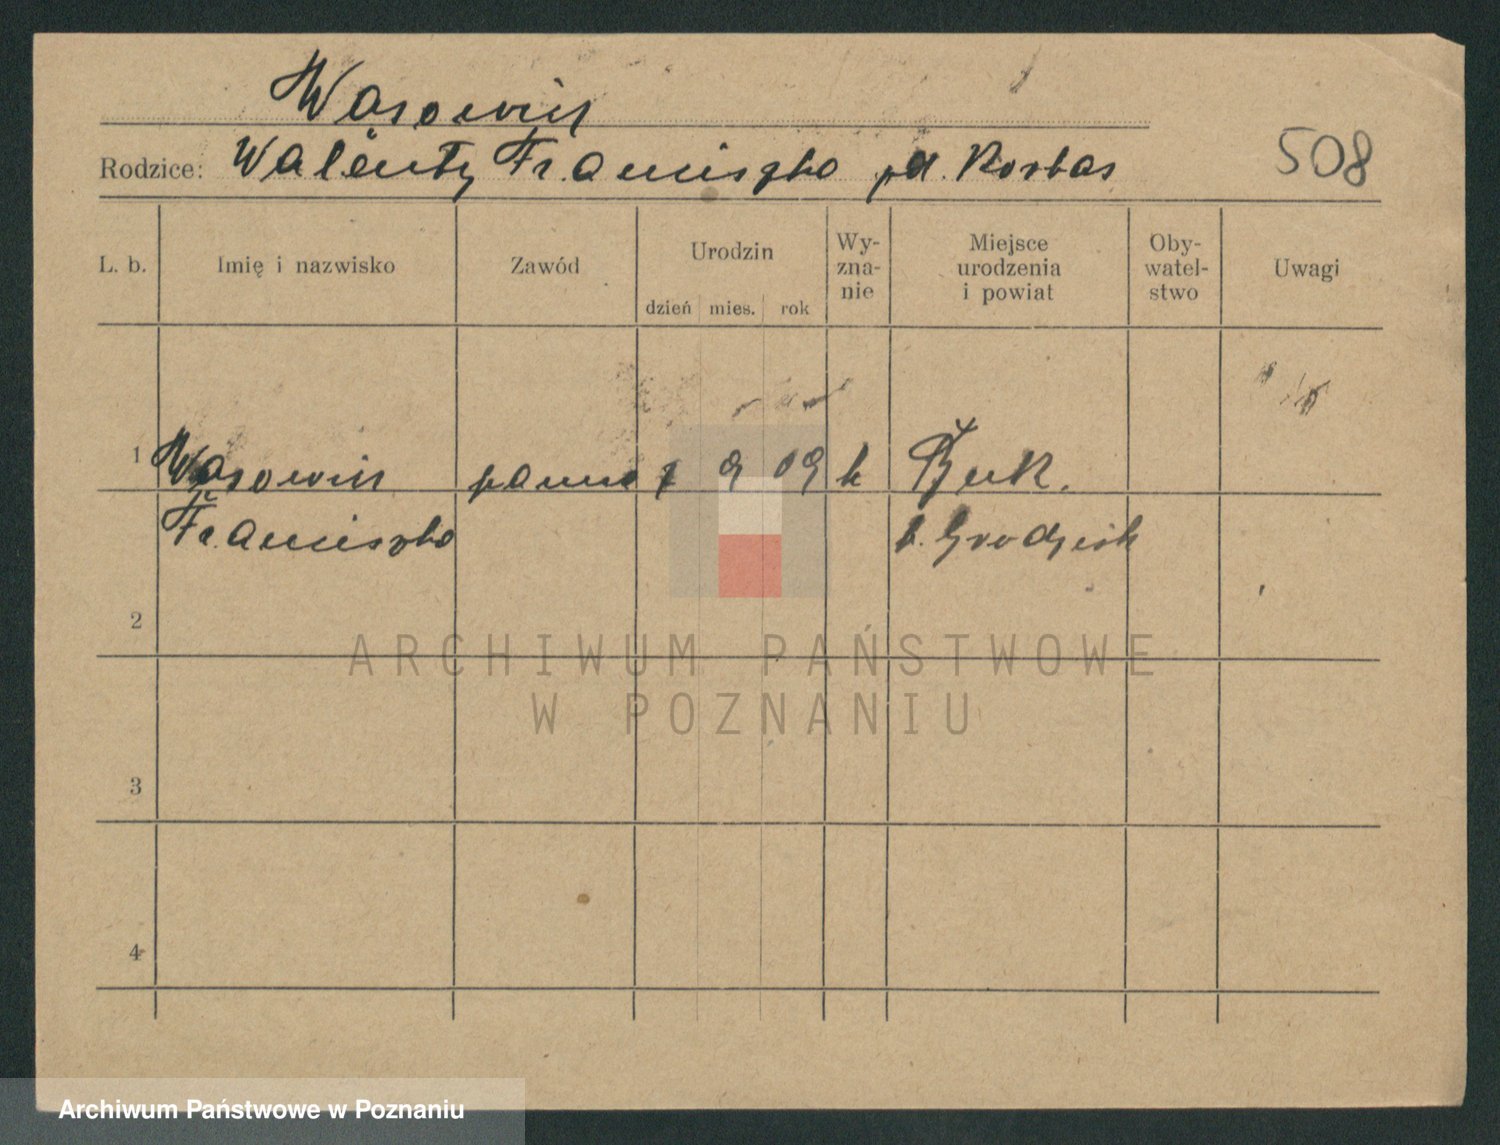 Wasowicz
Rodzice: Walenty Franciszka pd. Kostas
508
L. b. Imię i nazwisko Zawód Urodzin dzień mies. rok Wy-zna-nie Miejsce urodzenia i powiat Oby-watel-stwo Uwagi
1 Wasowicz panna 9 09 k Buk.
Franciszka p. Grodzisk
2
ARCHIWUM PAŃSTWOWE
W POZNANIU
3
4
Archiwum Państwowe w Poznaniu